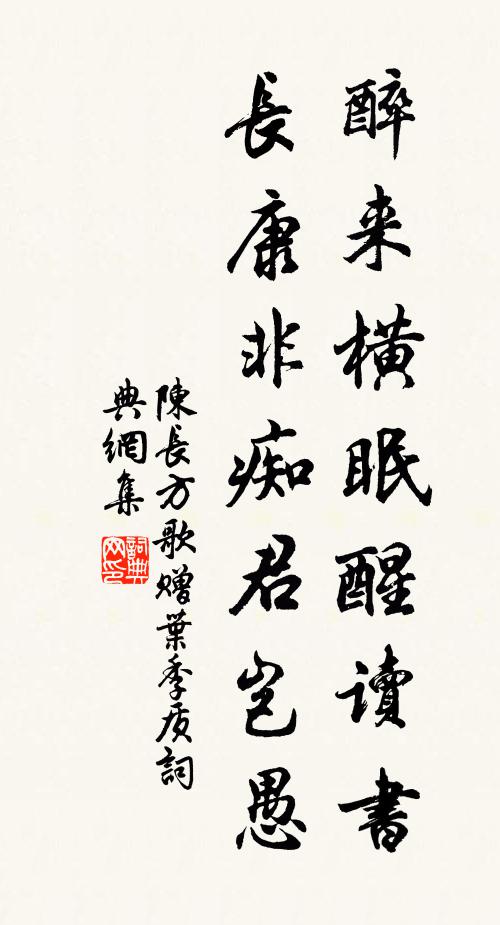 醉来橫眠醒讀書
長康非痴君岂愚
陳長方歌贈葉季质詞
典網集
詞典网印